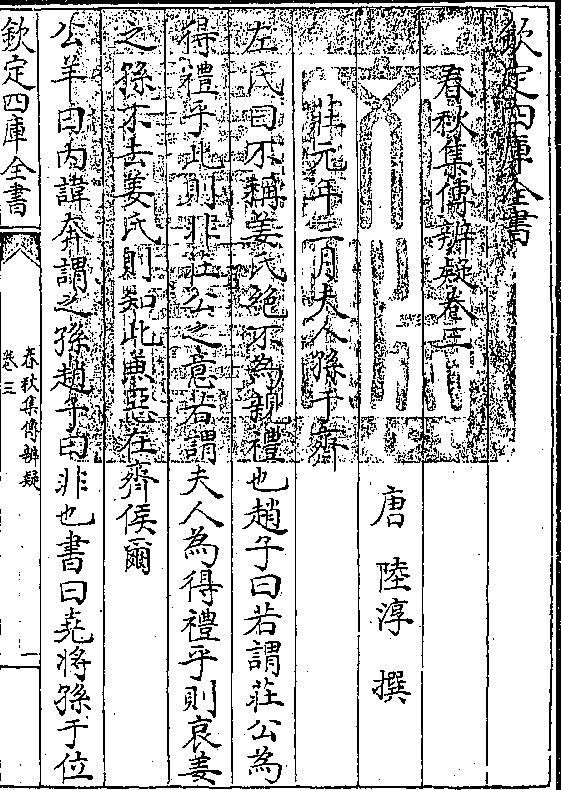 欽定四庫全書
春秋集傳辨疑卷三
唐陸淳撰
莊元年三月夫人孫于齊
左氏曰不稱姜氏絕不為親禮也趙子曰若謂莊公為
得禮乎此則非莊公之意若謂夫人為得禮乎則哀姜
之孫不去姜氏則知此兼惡在齊侯爾
公羊曰內諱奔謂之孫趙子曰非也書曰堯將孫于位
欽定四庫全書
春秋集傳辨疑
卷三
一